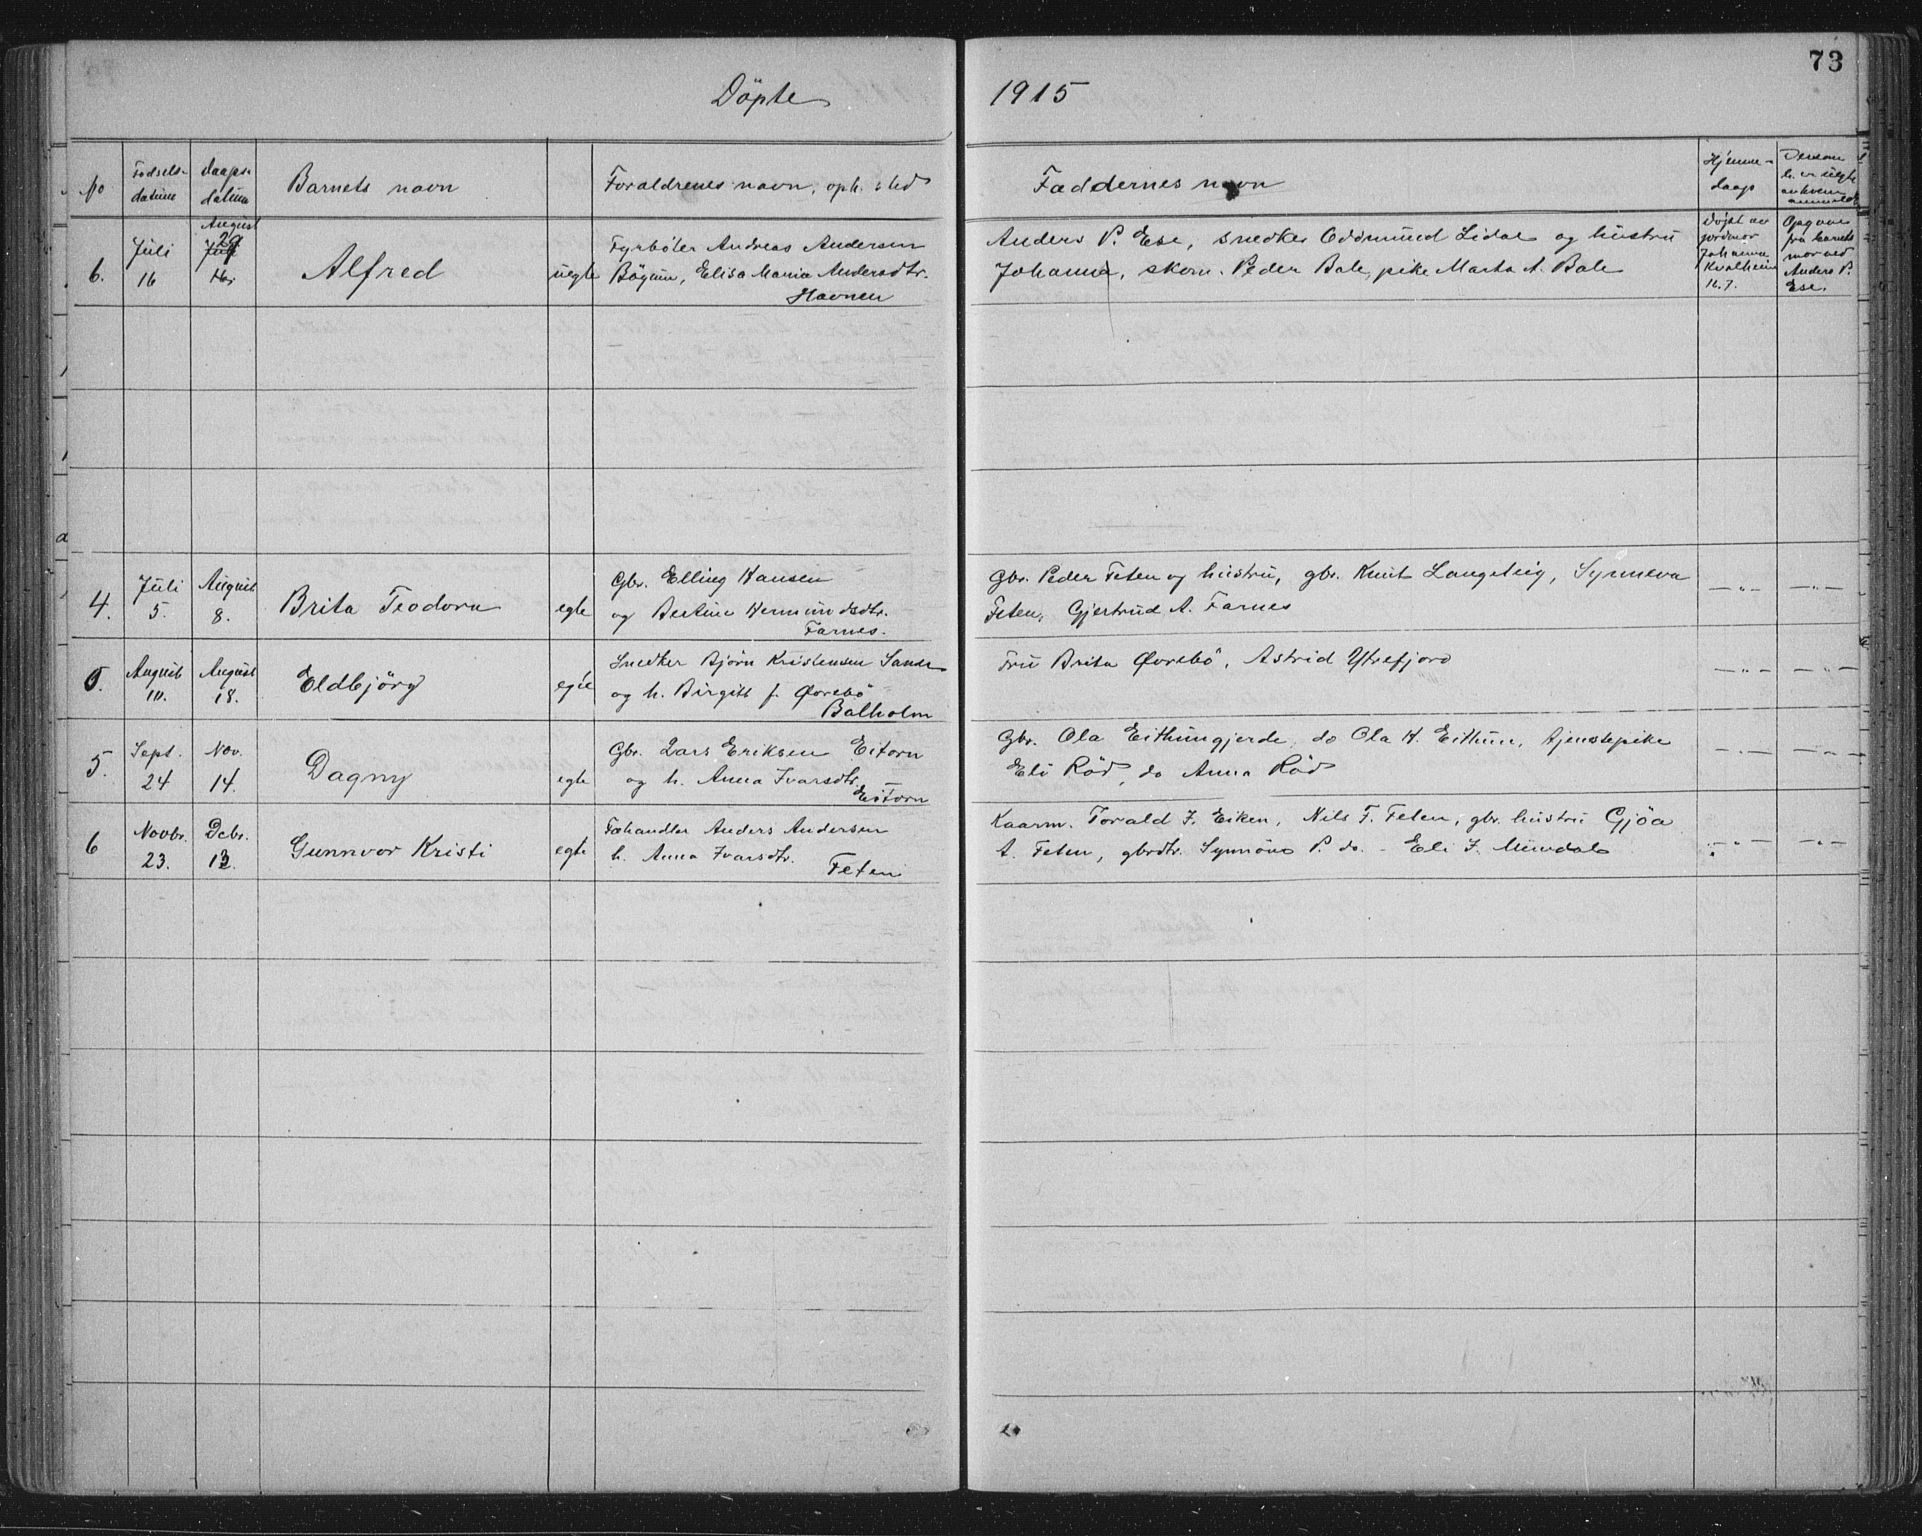 73
Döpte 1915
No Fødsels- datum Daaps- datum Barnets navn Foraldrenes navn, oph. sted Faddernes navn Hjemme- daap
6. Juli 16 August 29 Juli 16. Alfred uegte Fyrbøter Andreas Andersen
Bögum, Elisa Maria Andersdtr.
Havnen
Anders P. Ese, snedker Oddmund Lidal og hustru
Johanna, skom. Peder Bale, pike Marta A. Bale
Döpt av
jordmor
Johanna
Kvalheim
16.7.
Opgave
fra barnets
mor ved
Anders P.
Ese.
4. Juli 5. August 8. Brita Teodora egte Gbr. Elling Hansen
og Bertine Hermundsdtr.
Farnes.
Gbr. Peder Feten og hustru, gbr. Knut Langeteig, Synneva
Feten, Gjertrud A. Farnes
— „ — — „ —
0. August 10. August 18. Eldbjörg egte Snedker Bjørn Kristensen Sande
og h. Birgitt f. Øvrebö
Balholm
Fru Brita Øvrebö, Astrid Ytrefjord
— „ — — „ —
5. Sept. 24 Nov. 14. Dagny egte Gbr. Lars Eriksen Eitorn
og h. Anna Ivarsdtr.
Eitorn
Gbr. Ola Eithungjerde, do Ola H. Eithun, tjenstepike
Eli Röd, do Anna Röd
— „ — — „ —
6 Novbr. 23. Debr. 13. Gunnvor Kristi egte Fæhandler Anders Andersen
h. Anna Ivarsdtr.
Feten
Kaarm. Torvald J. Eiken, Nils F. Feten, gbr. hustru Gjöa
A. Feten, gbrdtr. Synnöve P. do. - Eli J. Mundal
— „ — — „ —